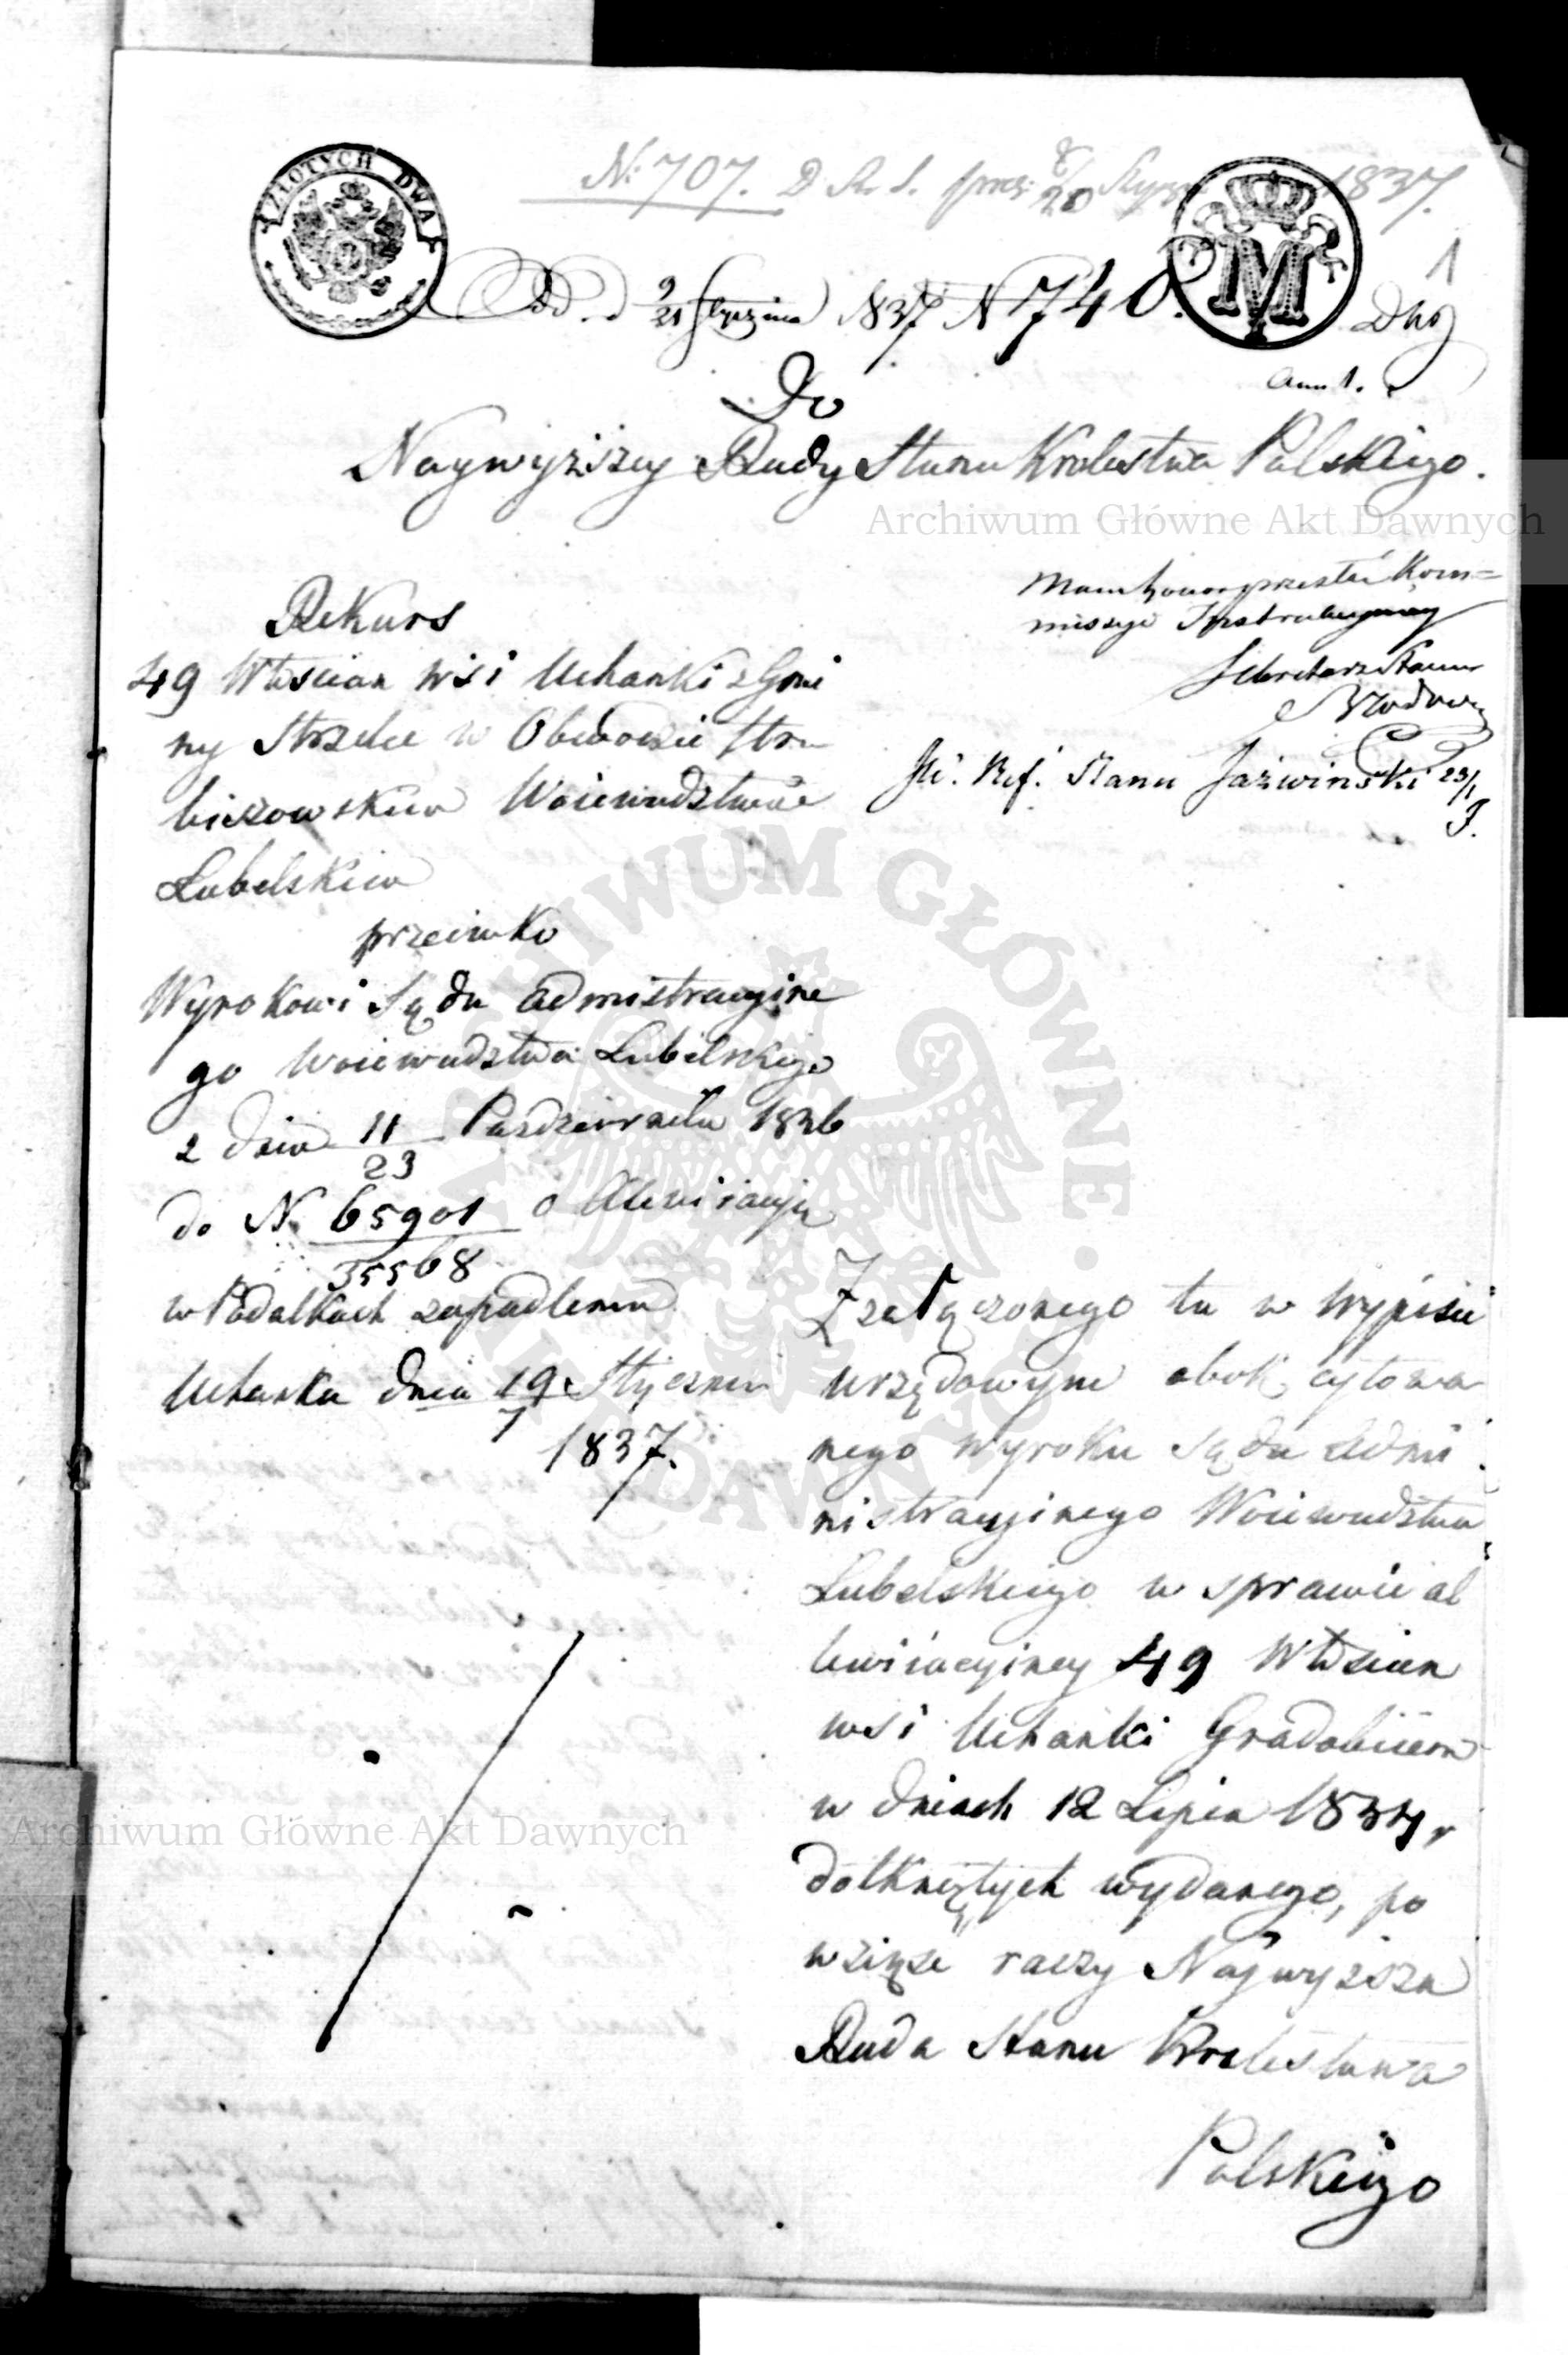 ZŁOTYCH DWA
N: 707. D 8/20 1837.
1
9/21 Stycznia 1837 N 740.
M
Ann 1.
Do
Naywyższey Rady Stanu Krolestwa Polskiego.
Archiwum Główne Akt Dawnych
Mam honor przesłać Kom=
missyi Instrukcyiney
Sekretarz Stanu
Rekurs
49 Włoscian wsi Uchanki z Gmi
ny Strzelce w Obwodzie Hru
bieszowskiem Woiewudztwie
Lubelskiem
Ref. Stanu Jaźwiński 23/1
przeciwko
Wyrokowi Sądu Admistracyine
go Woiewudztwa Lubelskiego
z dnia 11/23 Pazdziernika 1836
do N. 65901/35568 o Alewiacyją
w Podatkach zapadlemu
Uchanka dnia 19/7 Stycznia
1837.
Z załączonego tu w Wypisie
urzędowym obok cytowa
nego wyroku sądu Admi
nistracyjnego Woiewudztwa
Lubelskiego w sprawie al
lewiacyjney 49 Włoscian
wsi Uchanki Gradobiciem
w dniach 12 Lipca 1834 r
dotkniętych wydanego, po
wziąść raczy Naywyższa
Rada Stanu Krolestwa
Polskiego
Archiwum Główne Akt Dawnych
ARCHIWUM GŁÓWNE AKT DAWNYCH